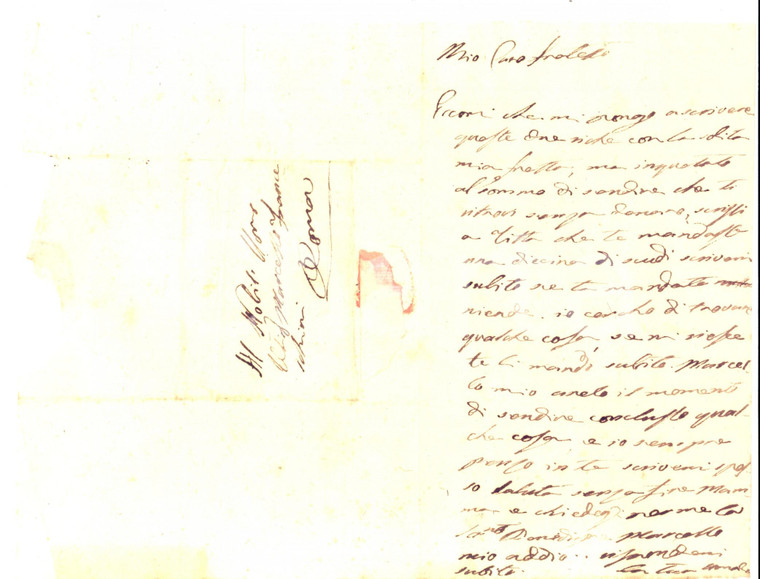 Al Nobil Uomo
Marcello
Roma
Mio Caro Fratello
Eccomi che mi pongo a scrivere
queste due righe con la solita
mia fretta, ma inquietata
al sommo di sendire che ti
ritrovi senza denaro, scrissi
a Titta che te mandasse
una diecina di scudi scrivemi
subito se ta mandato
niende. io cercho di trovare
qualche cosa, se mi riesce
te li mando subito. Marcel
lo mio anelo il momento
di sendire concluso qual
che cosa, e io sempre
penso in te scrivemi spes
so saluta senza fine Mam
ma e chiedegli per me la
Marcello
mio addio. rispondemi
subito. la tua